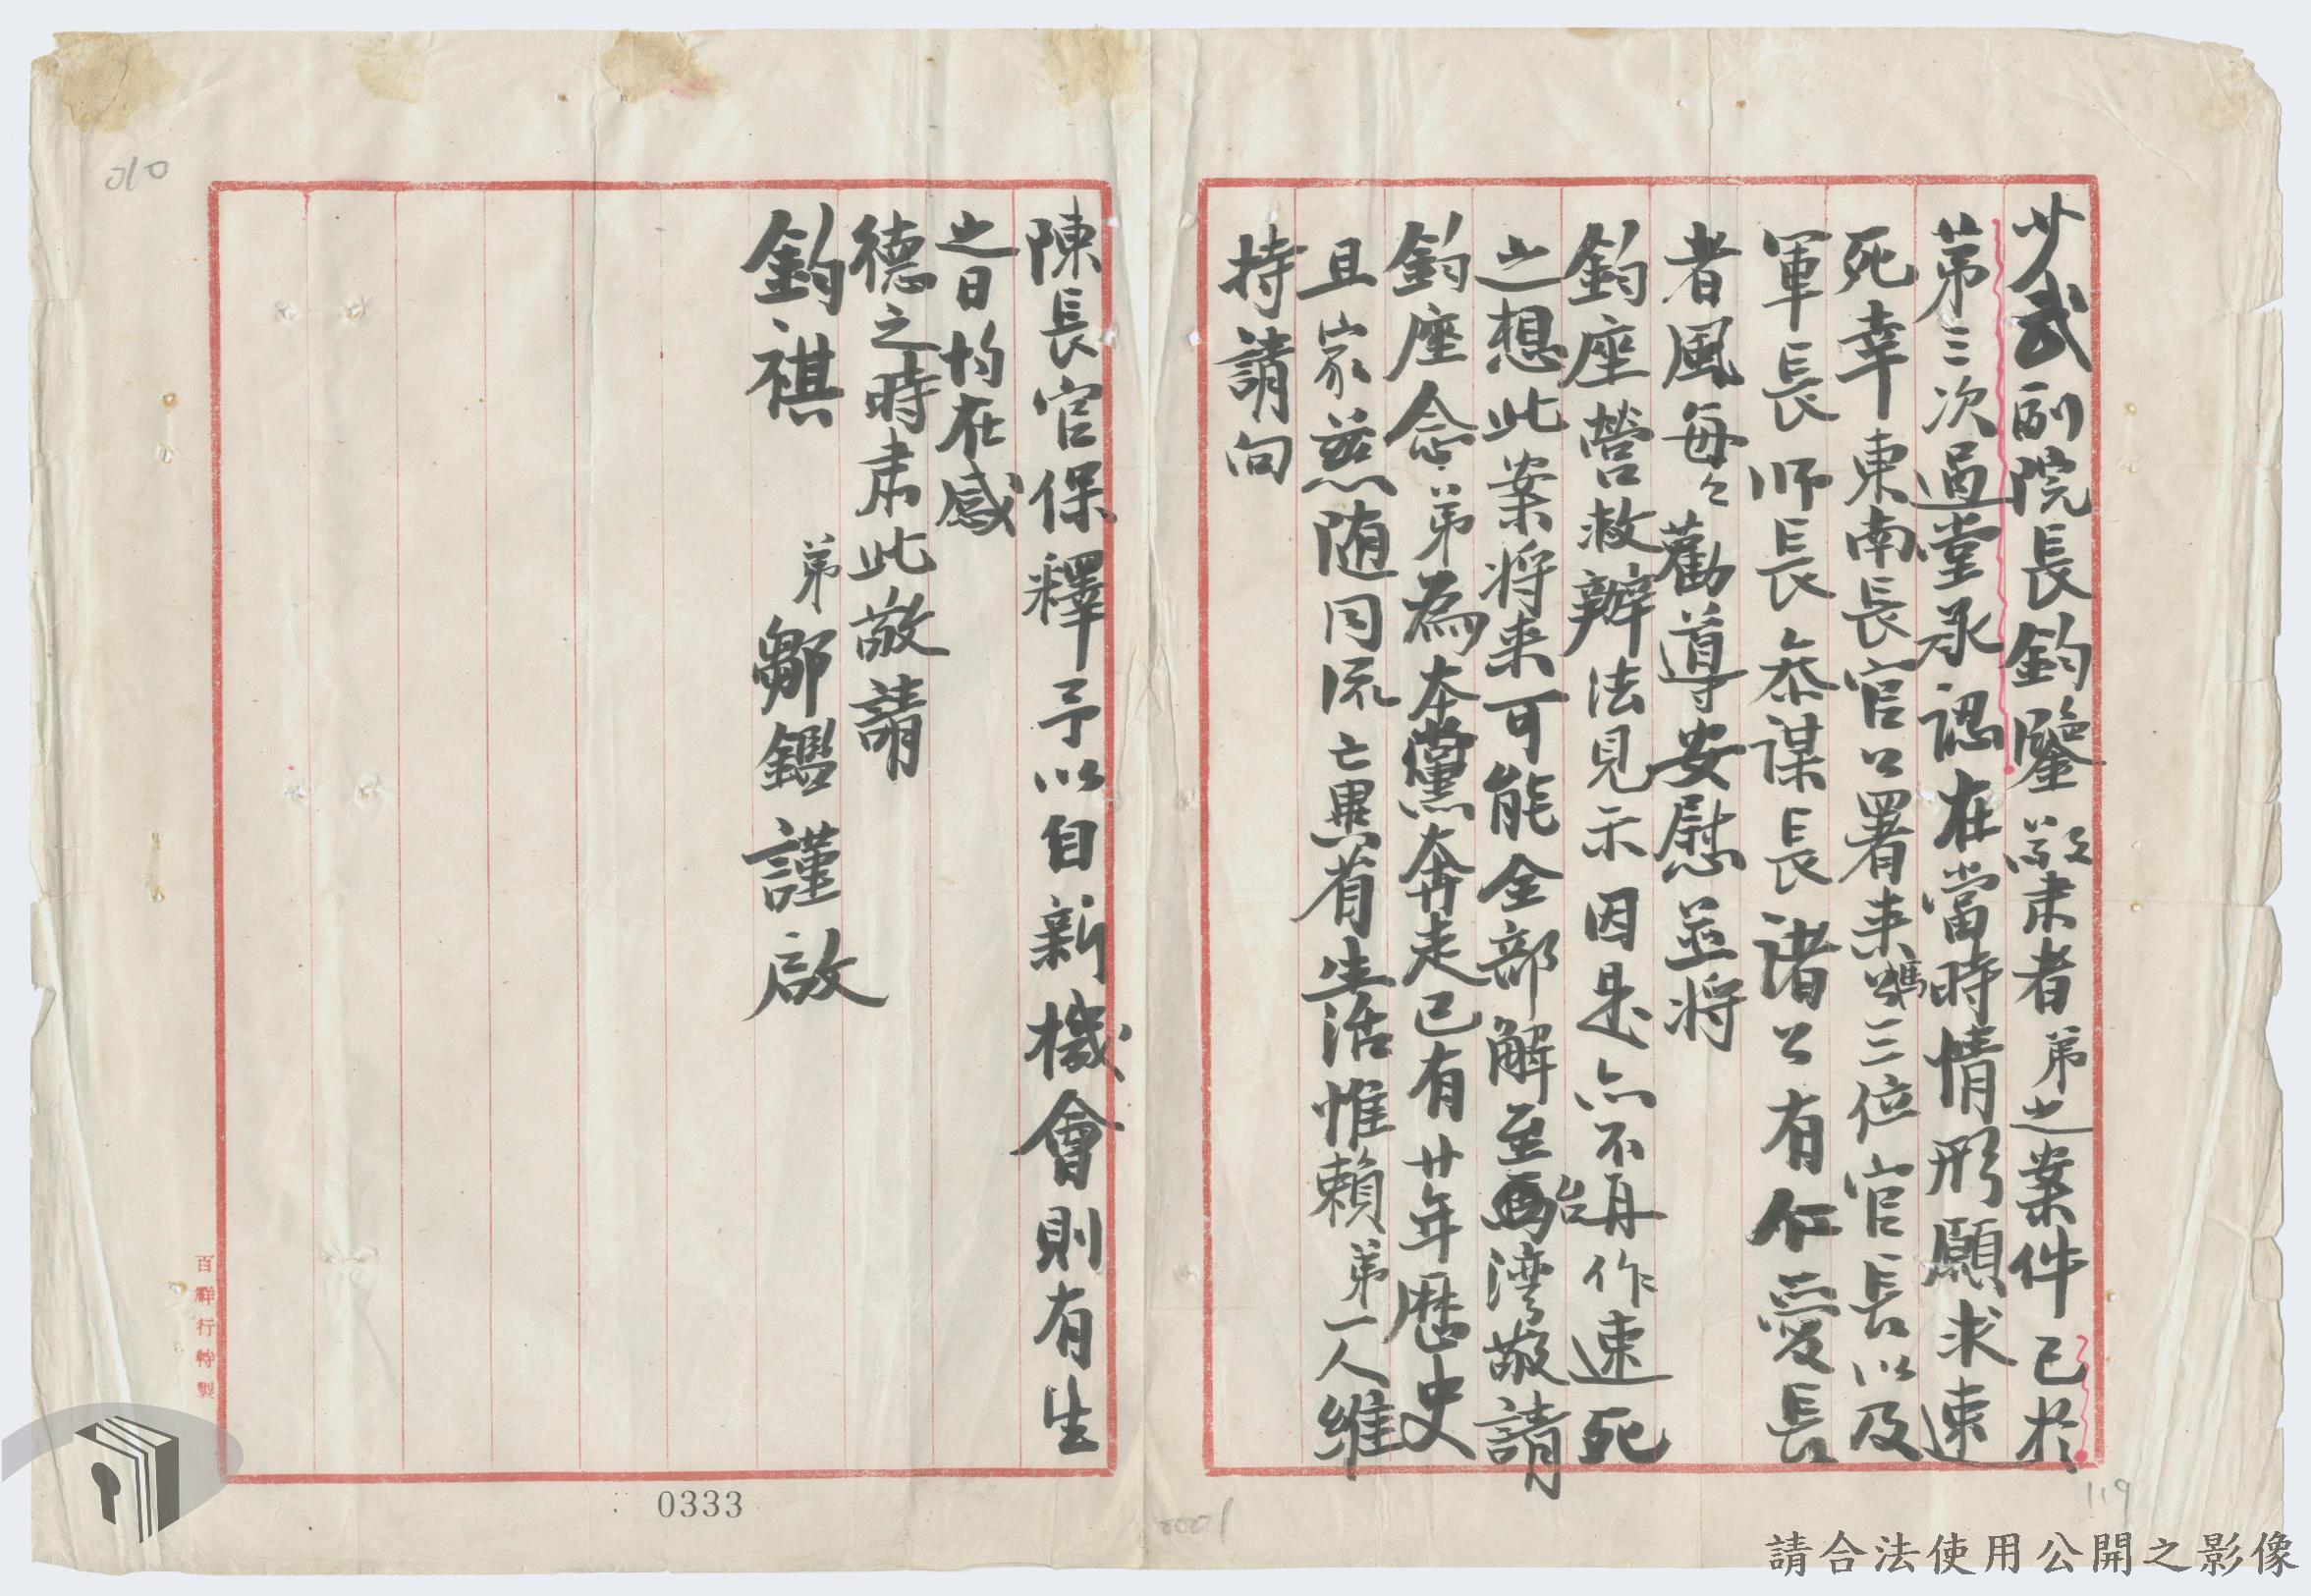 少武副院長鈞鑒敬肅者弟之案件已於
第三次過堂承認在當時情形願求速
死幸東南長官公署来碼三位官長以及
軍長師長叅謀長諸公有仁愛長
者風每々勸導安慰並将
鈞座營救辦法見示因是亦不再作速死
之想此案将来可能全部解至台湾敬請
鈞座念弟為本黨奔走已有廿年歷史
且家慈随同流亡異萳生活惟賴弟一人維
持請向
陳長官保釋予以自新機會則有生
之日均在感
德之時肅此敬請
鈞祺
弟鄒鑑謹啟
百祥行特製
010
0333
119
請合法使用公開之影像